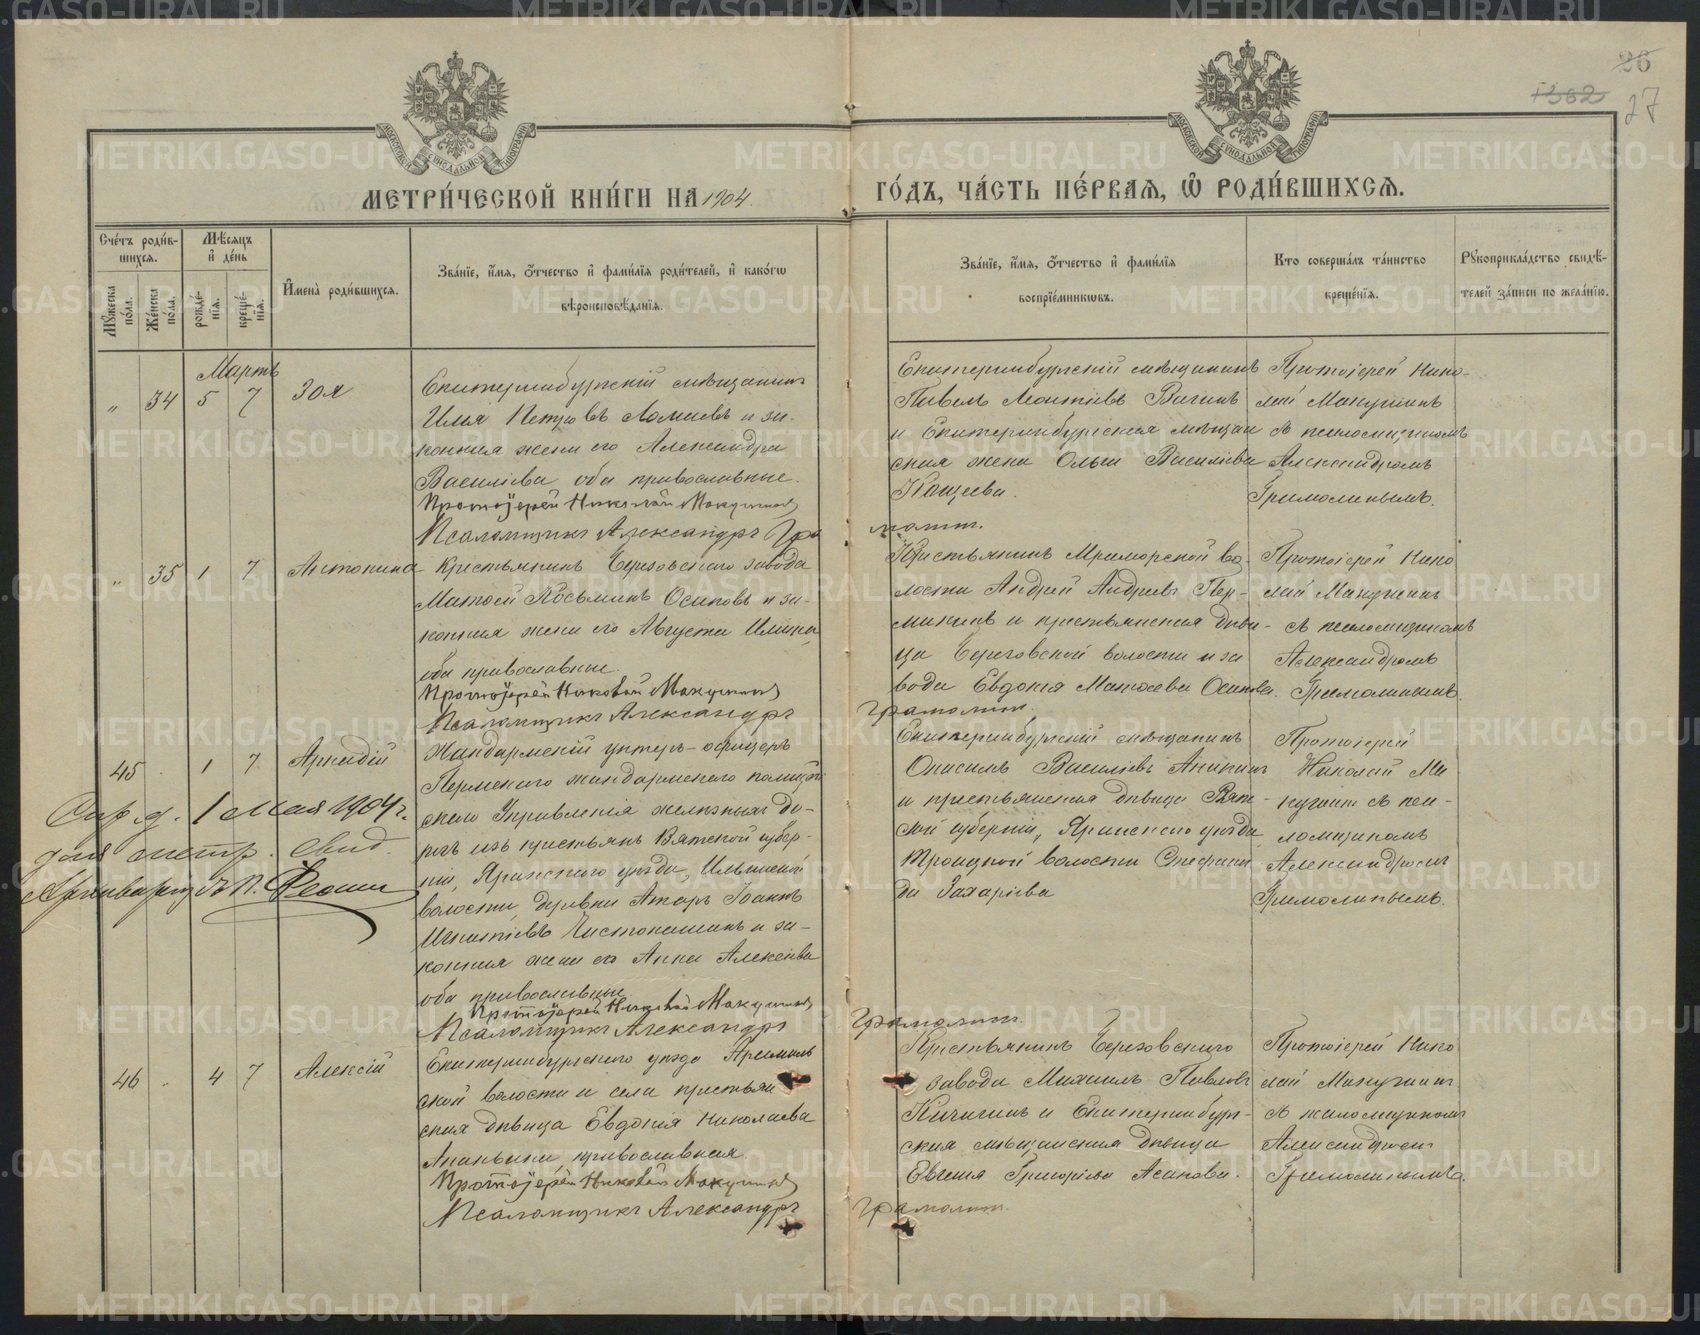 26
1362
27
МЕТРИ́ЧЕСКОЙ КНИ́ГИ НА 1904
ГО́ДЪ, ЧА́СТЬ ПЕ́РВАѦ, Ѽ РОДИ́ВШИХСѦ.
Сче́тъ роди́в-
шихсѧ.
Мꙋ́жеска по́ла.
Же́нска по́ла.
Мѣ́сѧцъ
и҆ де́нь
рожде́-
нїѧ.
креще́-
нїѧ.
И҆мена̀ роди́вшихсѧ.
Зва́нїе, и҆́мѧ, ѻ҆́тчество и҆ фами́лїѧ роди́телей, и҆ како́гѡ
вѣроисповѣ́данїѧ.
Зва́нїе, и҆́мѧ, ѻ҆́тчество и҆ фами́лїѧ
воспрїе́мникѡвъ.
Кто соверша́лъ та́инство
креще́нїѧ.
Рꙋкоприкла́дство свидѣ́-
телей за́писи по жела́нїю.
Мартъ
" 34 5 7 Зоя
Екатеринбургскій мѣщанинъ
Илья Петровъ Ломаевъ и за-
конная жена его Александра
Васильева, оба православные.
Протоіерей Николай Макушинъ
Псаломщикъ Александръ Гра
малин.
Екатеринбургскій мѣщанинъ
Павелъ Леонтіевъ Вагинъ
и Екатеринбургская мѣщан
ская жена Ольга Васильева
Кощеева.
Протоіерей Нико-
лай Макушинъ
съ псаломщикомъ
Александромъ
Грамолинымъ.
" 35 1 7 Антонина
Крестьянинъ Березовскаго завода
Матѳей Косьминъ Осиповъ и за-
конная жена его Августа Ильина,
оба православные.
Протоіерей Николай Макушинъ
Псаломщикъ Александръ
Грамолин.
Крестьянинъ Мраморской во-
лости Андрей Андреевъ Пер-
минивъ и крестьянская дѣви-
ца Березовской волости и за
вода Евдокія Матѳеева Осипова.
Протоіерей Нико
лай Макушинъ
съ псаломщикомъ
Александромъ
Грамолинымъ.
45 1 7 Аркадій
Жандармскій унтеръ-офицеръ
Пермскаго жандармскаго полицей
скаго Управленія желѣзныхъ до-
рогъ изъ крестьянъ Вятской губер-
ніи, Яранскаго уѣзда, Ильинской
волости, деревни Атаръ Іоаннъ
Игнатіевъ Чистопашинъ и за-
конная жена его Анна Алексѣева
оба православные.
Протоіерей Николай Макушинъ
Псаломщикъ Александръ
Грамолин.
1 Мая 1904 г.
для метр. Свид.
Екатеринбургскій мѣщанинъ
Онисимъ Васильевъ Аникинъ
и крестьянская дѣвица Вят-
ской губерніи, Яранскаго уѣзда
Троицкой волости Стефани
да Захарова
Протоіерей
Николай Ма
кушинъ съ пса-
ломщикомъ
Александромъ
Грамолинымъ.
46 4 7 Алексій
Екатеринбургскаго уѣзда Арамиль
ской волости и села крестьян
ская дѣвица Евдокія Николаева
Ананьина православная.
Протоіерей Николай Макушинъ
Псаломщикъ Александръ
Грамолин.
Крестьянинъ Березовскаго
завода Михаилъ Павловъ
Кичигинъ и Екатеринбург-
ская мѣщанская дѣвица
Евгенія Григорьева Асанова.
Протоіерей Нико
лай Макушинъ
съ псаломщикомъ
Александромъ
Грамолинымъ.